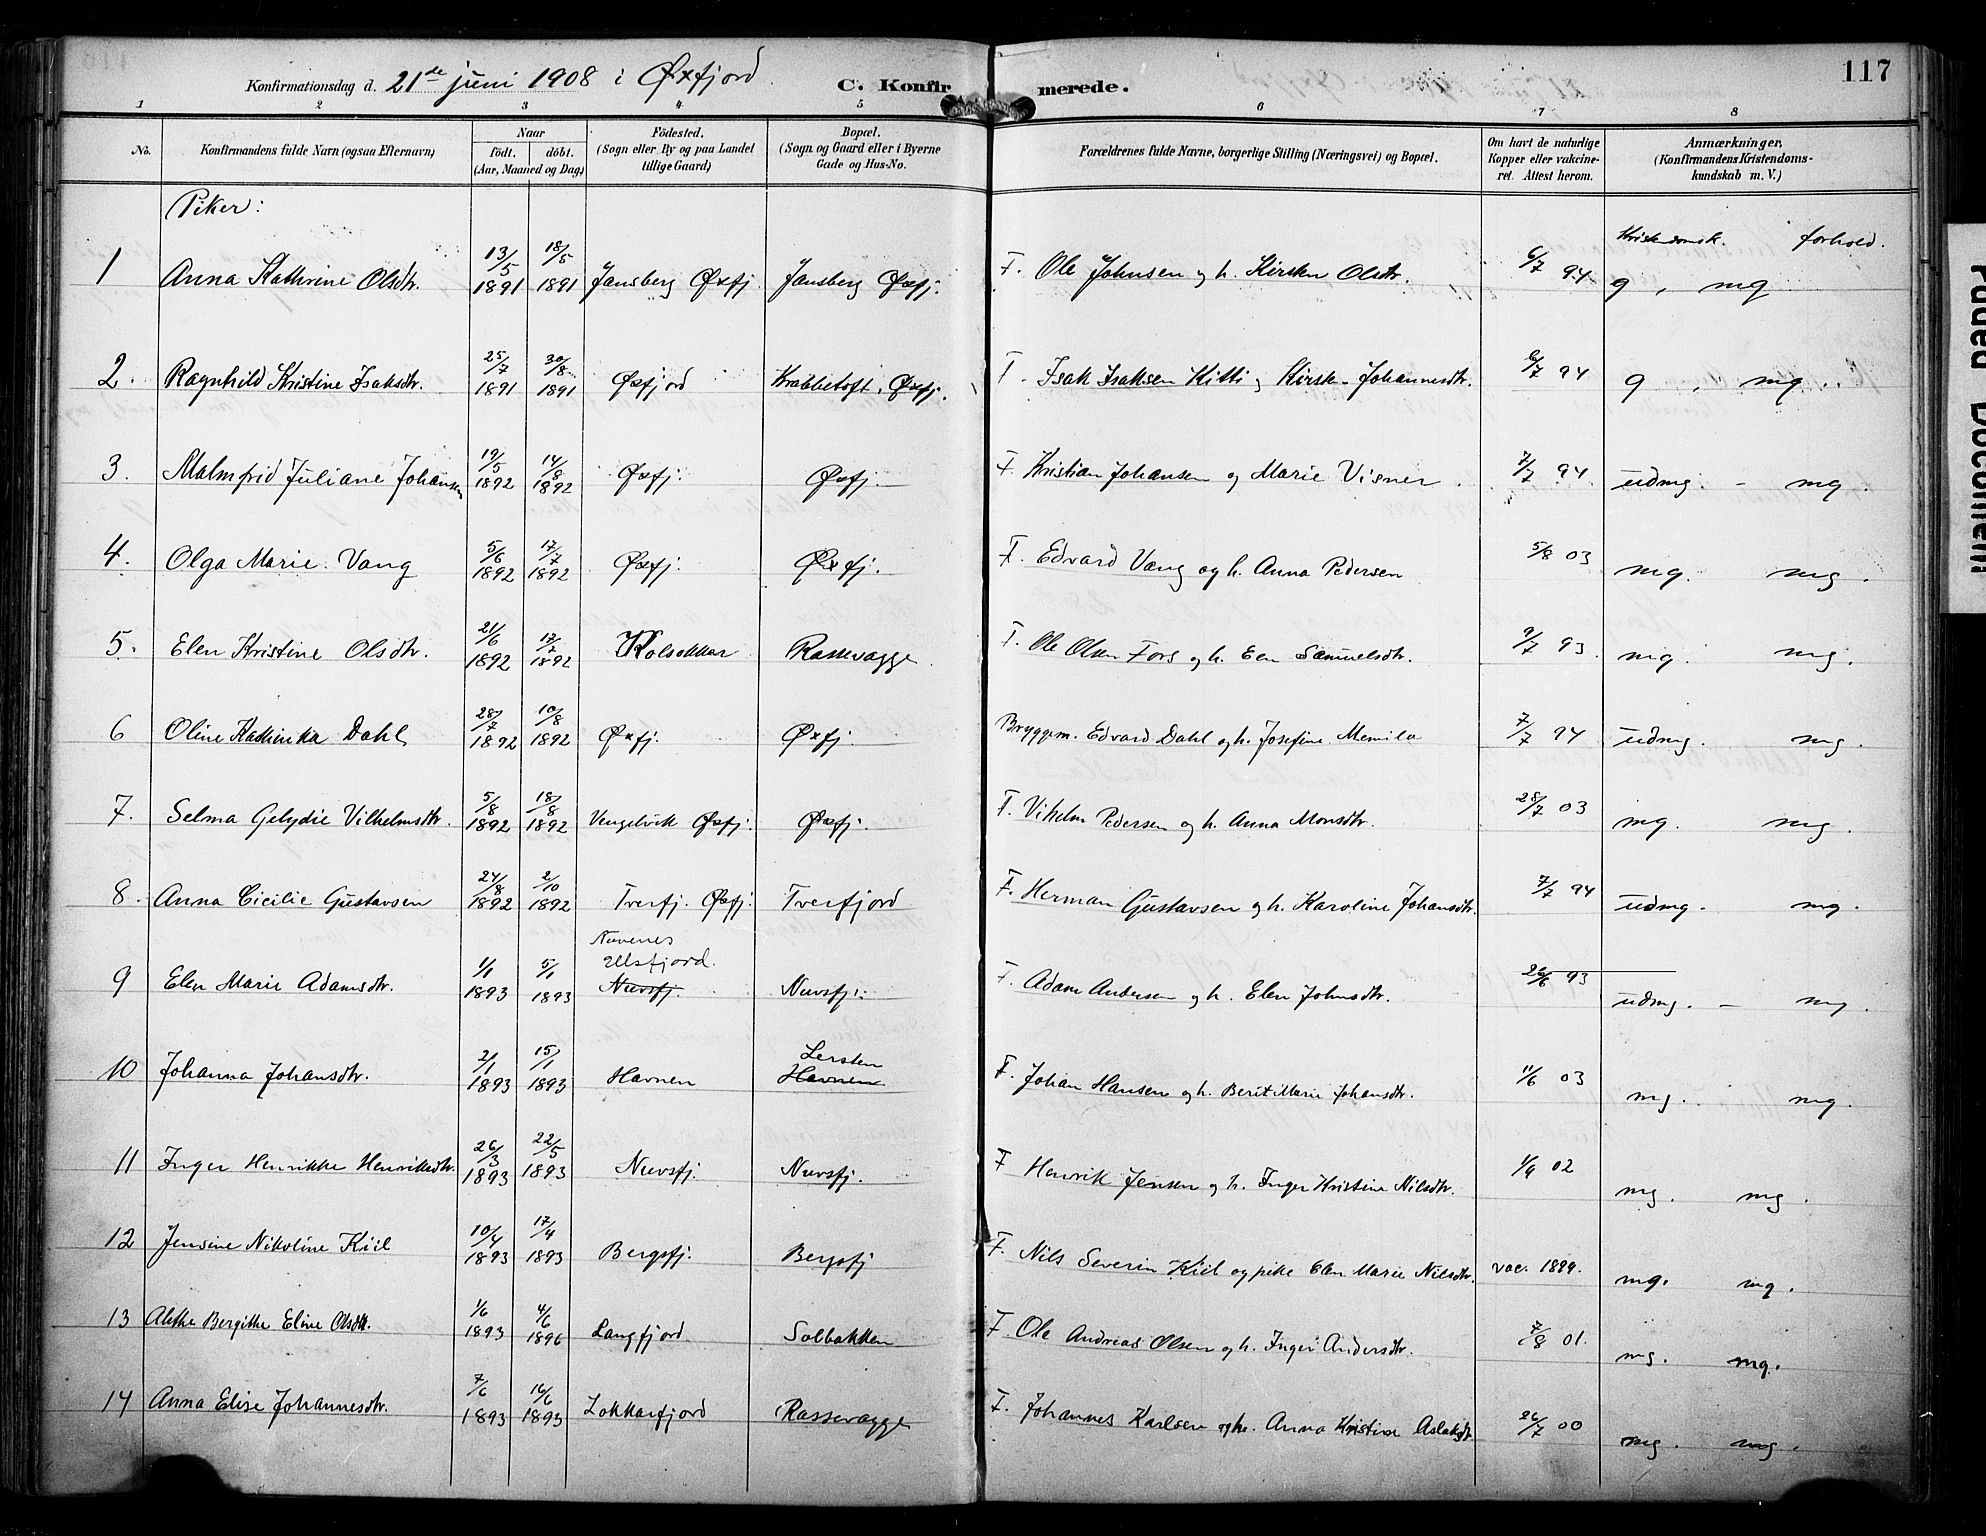 117
Konfirmationsdag d. 21de juni 1908 i Øxfjord C. Konfirmerede.
1 2 3 4 5 6 7 8
No. Konfirmandens fulde Navn (ogsaa Efternavn) Naar födt. döbt. (Aar, Maaned og Dag) Födested. (Sogn eller By og paa Landet tillige Gaard) Bopæl. (Sogn og Gaard eller i Byerne Gade og Hus-No. Forældrenes fulde Navne, borgerlige Stilling (Næringsvei) og Bopæl. Om havt de naturlige Kopper eller vakcineret. Attest herom. Anmærkninger, (Konfirmandens Kristendomskundskab m. V.)
Piker:
Kristendomsk. forhold.
1 Anna Kathrine Olsdtr. 13/5 1891 18/5 1891 Jansberg Øxfj. Jansberg Øxfj. F. Ole Johnsen og h. Kirsten Olsdtr. 6/7 94 g , mg
2. Ragnhild Kristine Isaksdtr. 25/7 1891 30/8 1891 Øxfjord Krabbetoft, Øxfj. F. Isak Isaksen Kitti og Kirst. Johannesdtr. 6/7 94 g , mg.
3. Malmfrid Juliane Johansen 19/5 1892 14/8 1892 Øxfj. Øxfj. F. Kristian Johansen og Marie Visner. 7/7 94 udmg. - mg.
4. Olga Marie Vang 5/6 1892 17/7 1892 Øxfj. Øxfj. F. Edvard Vang og h. Anna Pedersen 5/8 03 mg. mg.
5. Elen Kristine Olsdtr. 21/6 1892 17/7 1892 Kolsokkar Rassevagge F. Ole Olsen Fors og h. Elen Samuelsdtr. 9/7 93 mg. mg.
6 Oline Kathinka Dahl 28/7 1892 10/8 1892 Øxfj. Øxfj. Bryggem. Edvard Dahl og h. Josefine 7/7 94 udmg. mg.
7. Selma Gelydie Vilhelmsdtr. 5/8 1892 18/8 1892 Vengelvik Øxfj. Øxfj. F. Vilhelm Pedersen og h. Anna Monsdtr. 28/7 03 mg. mg.
8. Anna Cicilie Gustavsen 24/8 1892 2/10 1892 Tverfj. Øxfj. Tverfjord F. Herman Gustavsen og h. Karoline Johansdtr. 7/7 94 udmg. mg.
Nuvenes
Ulsfjord.
9 Elen Marie Adamsdtr. 1/1 1893 5/1 1893 Nuvsfj. Nuvsfj. F. Adam Andersen og h. Elen Johnsdtr. 26/6 93 udmg. - mg.
Lersten
10 Johanna Johansdtr. 2/1 1893 15/1 1893 Havnen Havnen F. Johan Hansen og h. Berit Marie Johansdtr. 11/6 03 mg. mg.
11 Inger Henrikke Henriksdtr. 26/3 1893 22/5 1893 Nuvsfj. Nuvsfj. F Henrik Jensen og h. Inger Kristine Nilsdtr. 1/9 02 mg. mg.
12 Jensine Nikoline Kiil 10/4 1893 17/4 1893 Bergsfj. Bergsfj F. Nils Severin Kiil og pike Elen Marie Nilsdtr. vac. 1899. mg. mg.
13 Alette Bergitte Eline Olsdtr. 1/6 1893 4/6 1896 Langfjord Solbakken F. Ole Andreas Olsen og h. Inger Andersdtr. 7/8 01. mg. mg.
14 Anna Elise Johannesdtr. 7/6 1893 16/6 1893 Lokkarfjord Rassevagge F. Johannes Karlsen og h. Anna Kristine Aslaksdtr. 26/7 00 mg. mg.